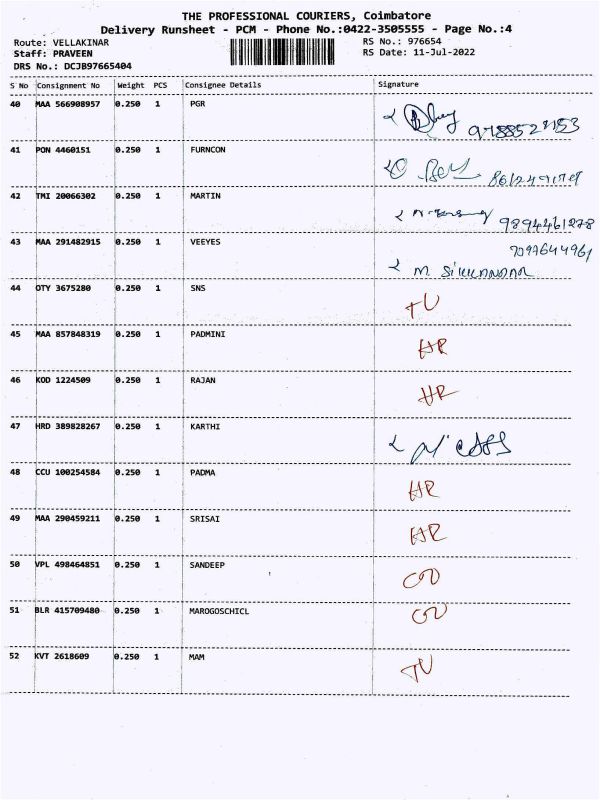 THE PROFESSIONAL COURIERS, Coimbatore
Delivery Runsheet - PCM - Phone No.:0422-3505555 - Page No.:4
Route: VELLAKINAR RS No.: 976654
Staff: PRAVEEN RS Date: 11-Jul-2022
DRS No.: DCJB97665404
S No Consignment No Weight PCS Consignee Details Signature
40 MAA 566908957 0.250 1 PGR
41 PON 4460151 0.250 1 FURNCON
42 TMI 20066302 0.250 1 MARTIN
9894461278
43 MAA 291482915 0.250 1 VEEYES
7097644961
M. SIKKANDAR
44 OTY 3675280 0.250 1 SNS
TU
45 MAA 857848319 0.250 1 PADMINI
HR
46 KOD 1224509 0.250 1 RAJAN
HR
47 HRD 389828267 0.250 1 KARTHI
48 CCU 100254584 0.250 1 PADMA
HR
49 MAA 290459211 0.250 1 SRISAI
HR
50 VPL 498464851 0.250 1 SANDEEP
51 BLR 415709480 0.250 1 MAROGOSCHICL
52 KVT 2618609 0.250 1 MAM
TU